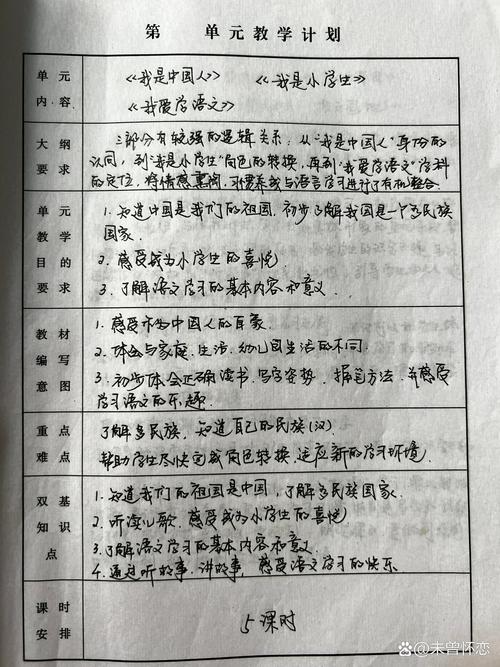 第 单元教学计划
单元内容
《我是中国人》 《我是小学生》
《我爱学语文》
大纲要求
三部分有较强的逻辑关系：从“我是中国人”身份的
认同，到“我是小学生”角色的转换，再到“我爱学语文”学科
的定位，将情感熏陶、习惯养成与语言学习进行了有机整合.
单元教学目的要求
1. 知道中国是我们的祖国，初步了解我国是一个多民族
国家.
2. 感受成为小学生的喜悦
3. 了解语文学习的基本内容和意义.
教材编写意图
1. 感受作为中国人的自豪
2. 体会与家庭.生活.幼儿园生活的不同.
3. 初步体会正确读书、写字姿势、握笔方法.并感受
学习语文的乐趣.
重点难点
了解多民族，知道自己的民族(汉)
帮助学生尽快完成角色转换.适应新的学习环境.
双基知识点
1. 知道我们的祖国是中国，了解多民族国家.
2. 听读儿歌.感受成为小学生的喜悦
3. 了解语文学习的基本内容和意义
4. 通过听故事、讲故事，感受语文学习的快乐
课时安排
5课时
@未曾怀恋